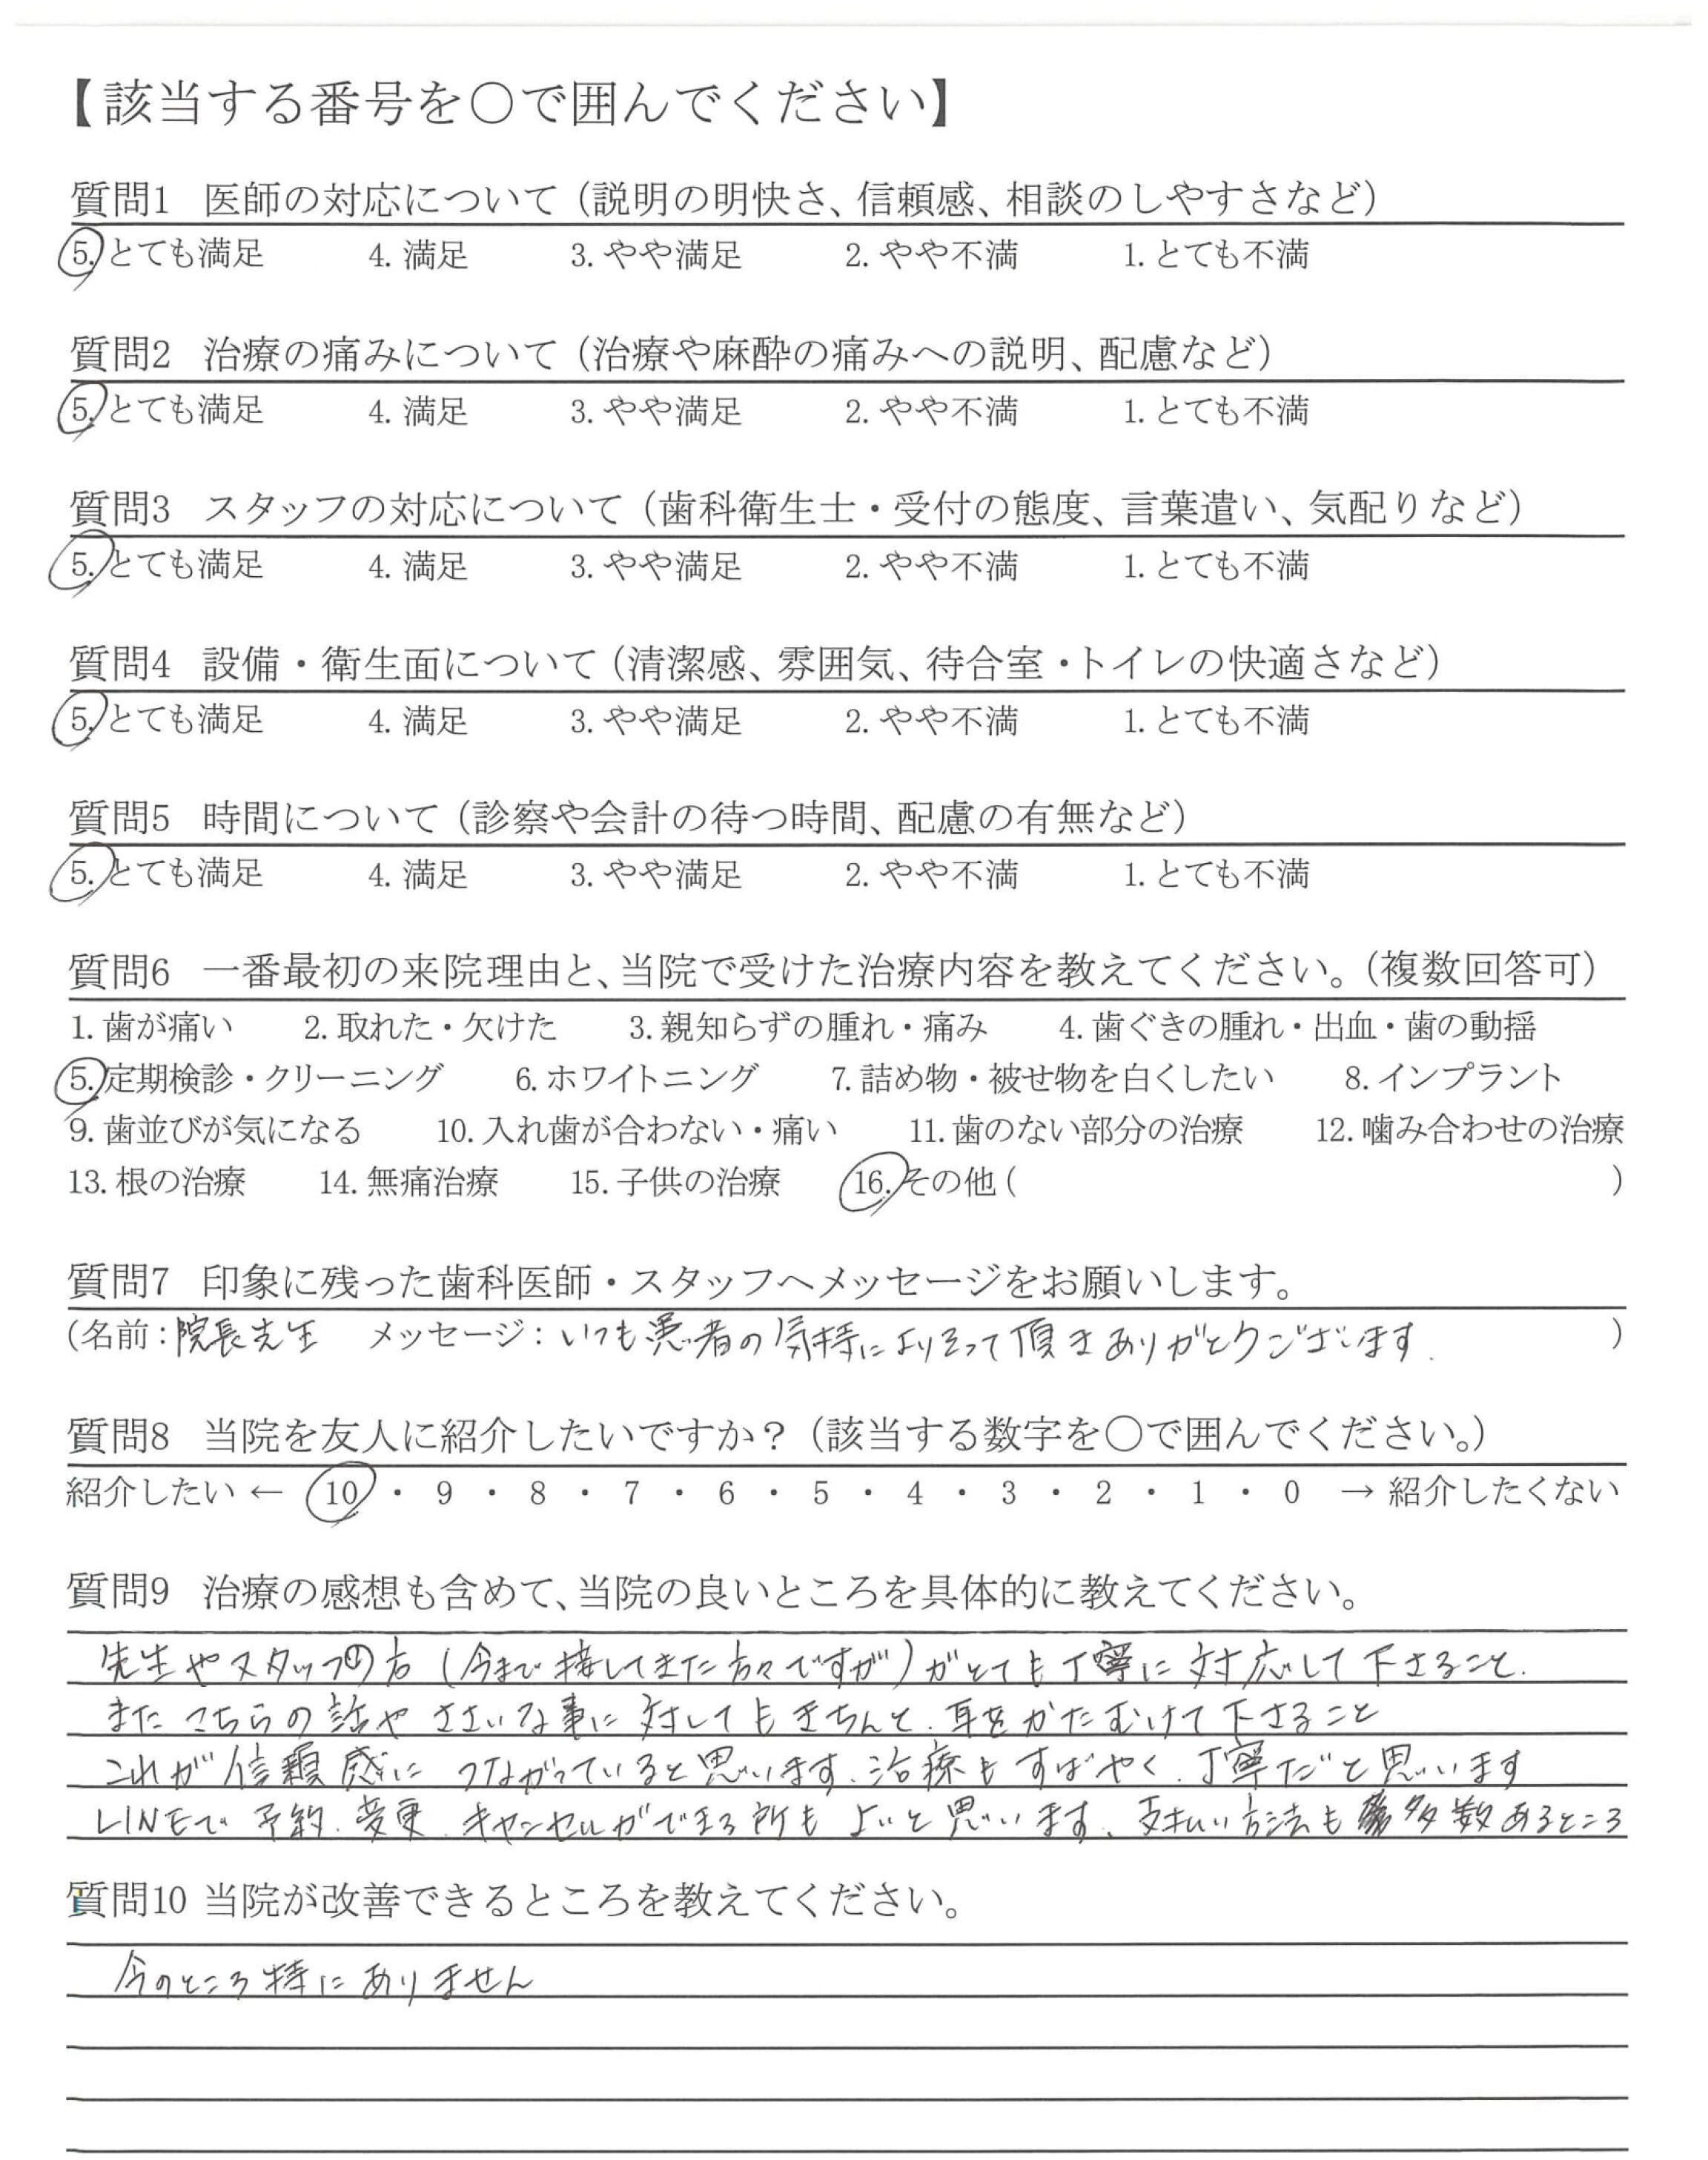 【該当する番号を○で囲んでください】
質問1 医師の対応について（説明の明快さ、信頼感、相談のしやすさなど）
5. とても満足 4. 満足 3. やや満足 2. やや不満 1. とても不満
質問2 治療の痛みについて（治療や麻酔の痛みへの説明、配慮など）
5. とても満足 4. 満足 3. やや満足 2. やや不満 1. とても不満
質問3 スタッフの対応について（歯科衛生士・受付の態度、言葉遣い、気配りなど）
5. とても満足 4. 満足 3. やや満足 2. やや不満 1. とても不満
質問4 設備・衛生面について（清潔感、雰囲気、待合室・トイレの快適さなど）
5. とても満足 4. 満足 3. やや満足 2. やや不満 1. とても不満
質問5 時間について（診察や会計の待つ時間、配慮の有無など）
5. とても満足 4. 満足 3. やや満足 2. やや不満 1. とても不満
質問6 一番最初の来院理由と、当院で受けた治療内容を教えてください。（複数回答可）
1. 歯が痛い 2. 取れた・欠けた 3. 親知らずの腫れ・痛み 4. 歯ぐきの腫れ・出血・歯の動揺
5. 定期検診・クリーニング 6. ホワイトニング 7. 詰め物・被せ物を白くしたい 8. インプラント
9. 歯並びが気になる 10. 入れ歯が合わない・痛い 11. 歯のない部分の治療 12. 噛み合わせの治療
13. 根の治療 14. 無痛治療 15. 子供の治療 16. その他（ ）
質問7 印象に残った歯科医師・スタッフへメッセージをお願いします。
（名前：院長先生 メッセージ：いつも患者の気持によりそって頂きありがとうございます. ）
質問8 当院を友人に紹介したいですか？（該当する数字を○で囲んでください。）
紹介したい ← 10 ・ 9 ・ 8 ・ 7 ・ 6 ・ 5 ・ 4 ・ 3 ・ 2 ・ 1 ・ 0 → 紹介したくない
質問9 治療の感想も含めて、当院の良いところを具体的に教えてください。
先生やスタッフの方（今まで接してきた方々ですが）がとても丁寧に対応して下さること.
またこちらの話やささいな事に対してもきちんと、耳をかたむけて下さること
これが信頼感につながっていると思います、治療もすばやく、丁寧だと思います
LINEで予約、変更、キャンセルができる所もよいと思います、支払い方法も多数あるところ
質問10 当院が改善できるところを教えてください。
今のところ特にありません